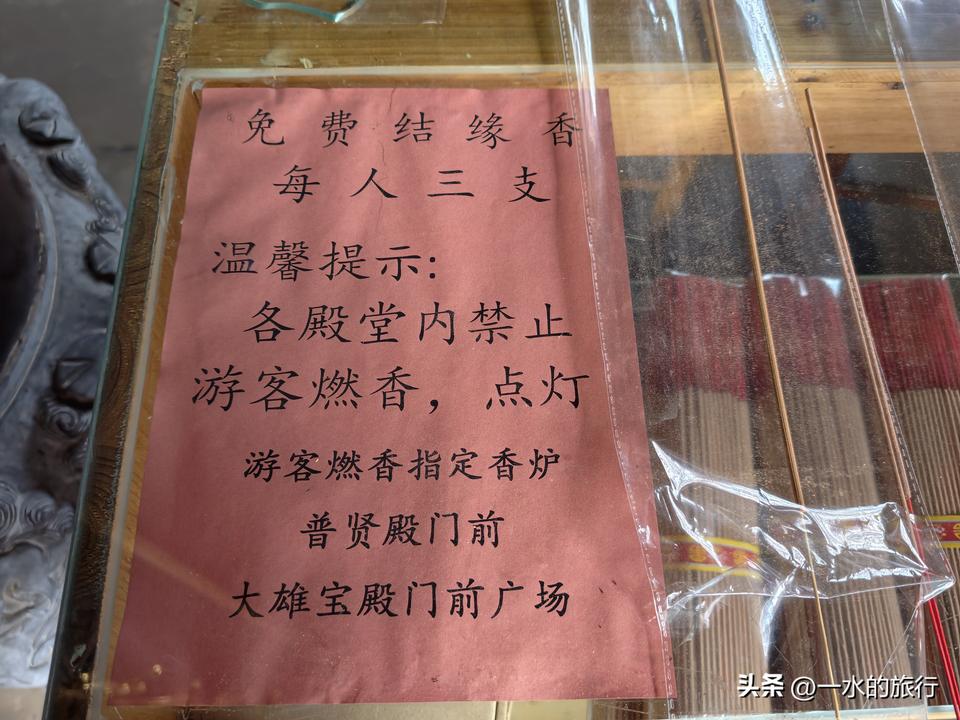 免费结缘香
每人三支
温馨提示:
各殿堂内禁止
游客燃香，点灯
游客燃香指定香炉
普贤殿门前
大雄宝殿门前广场
头条 @一水的旅行